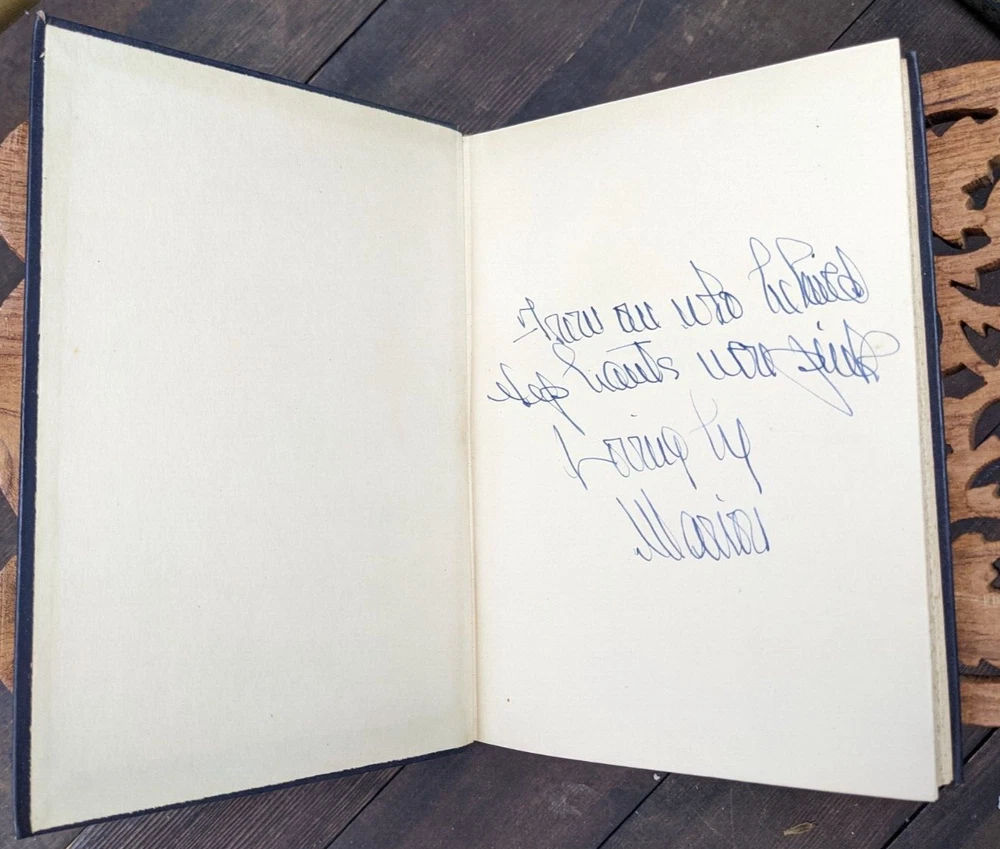 From one who believed
elephants were pink
Lovingly
Marion